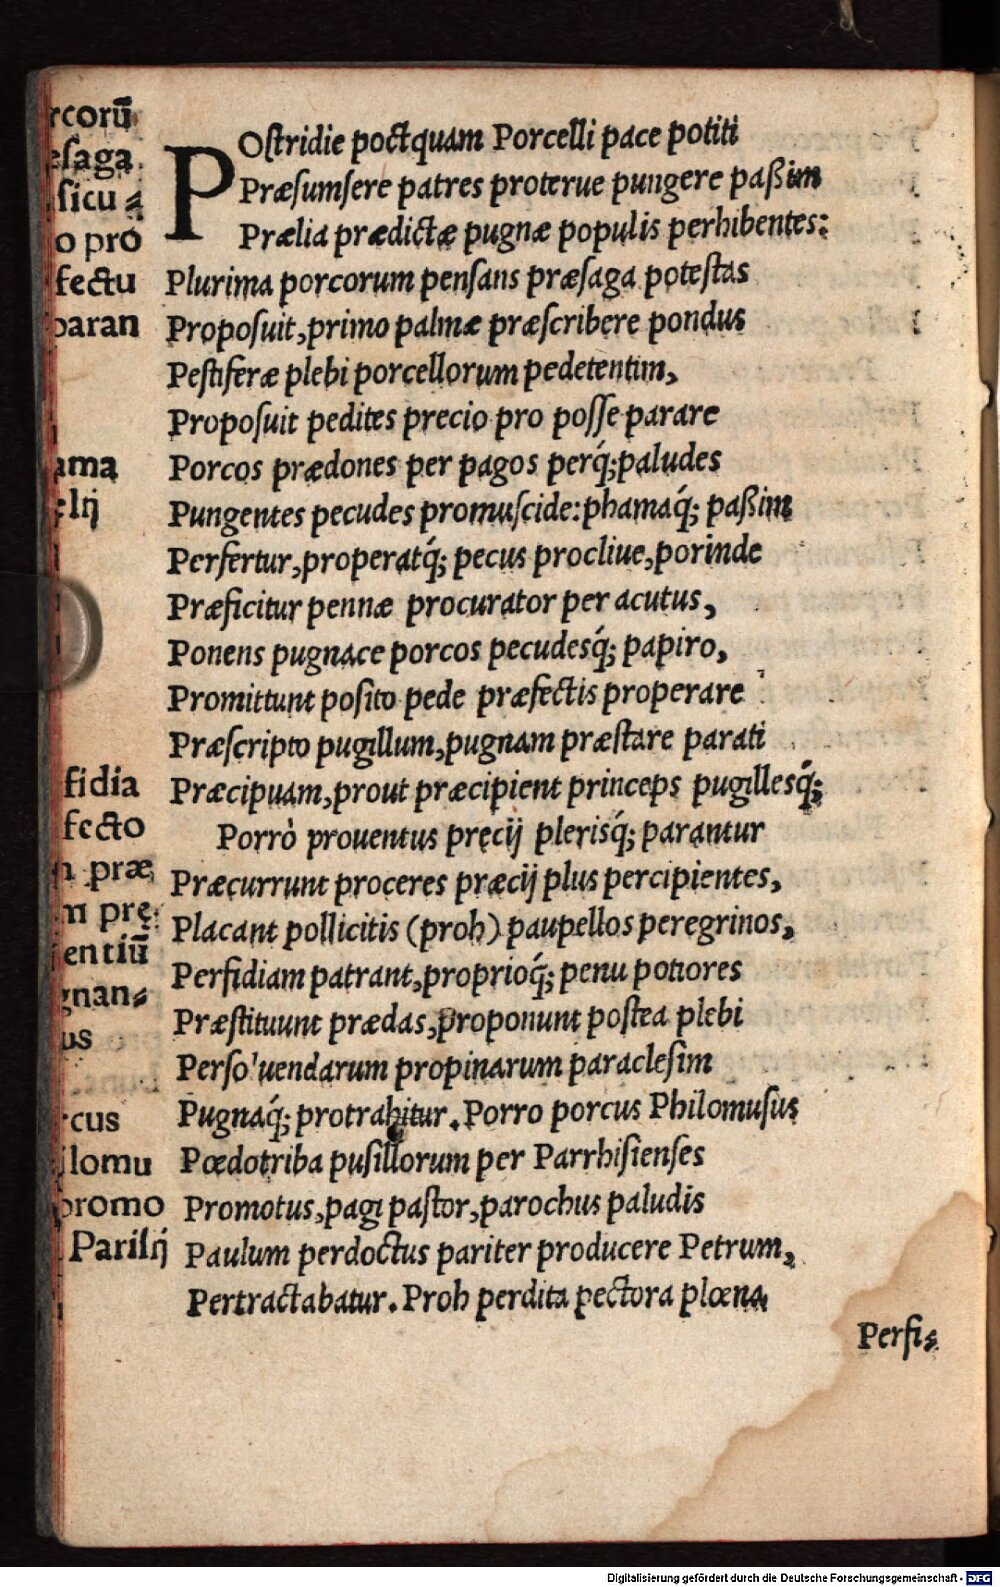 rcorū
esaga
sicu⸗
o pro
fectu
paran
ama
elij
fidia
fecto
n præ
m prę
entiū
gnan⸗
us
rcus
ilomu
promo
Parisij
POſtridie poctquam Porcelli pace potiti
Præſumſere patres proterue pungere paßim
Prælia prædictæ pugnæ populis perhibentes:
Plurima porcorum penſans præſaga poteſtas
Propoſuit,primo palmæ præſcribere pondus
Peſtiferæ plebi porcellorum pedetentim,
Propoſuit pedites precio pro poſſe parare
Porcos prædones per pagos perq́;paludes
Pungentes pecudes promuſcide:phamaq́; paßim
Perfertur,properatq́; pecus procliue,porinde
Præficitur pennæ procurator per acutus,
Ponens pugnace porcos pecudesq́; papiro,
Promittunt poſito pede præfectis properare
Præſcripto pugillum,pugnam præſtare parati
Præcipuam,prout præcipient princeps pugillesq́;
Porrò prouentus pręcij plerisq́; parantur
Præcurrunt proceres præcij plus percipientes,
Placant pollicitis (proh) paupellos peregrinos,
Perfidiam patrant,proprioq́; penu potiores
Præſtituunt prædas,proponunt poſtea plebi
Perſoluendarum propinarum paracleſim
Pugnaq́; protrahitur. Porro porcus Philomuſus
Pœdotriba puſillorum per Parrhiſienſes
Promotus,pagi paſtor,parochus paludis
Paulum perdoctus pariter producere Petrum,
Pertractabatur. Proh perdita pectora plœna
Perfi⸗
Digitalisierung gefördert durch die Deutsche Forschungsgemeinschaft - DFG